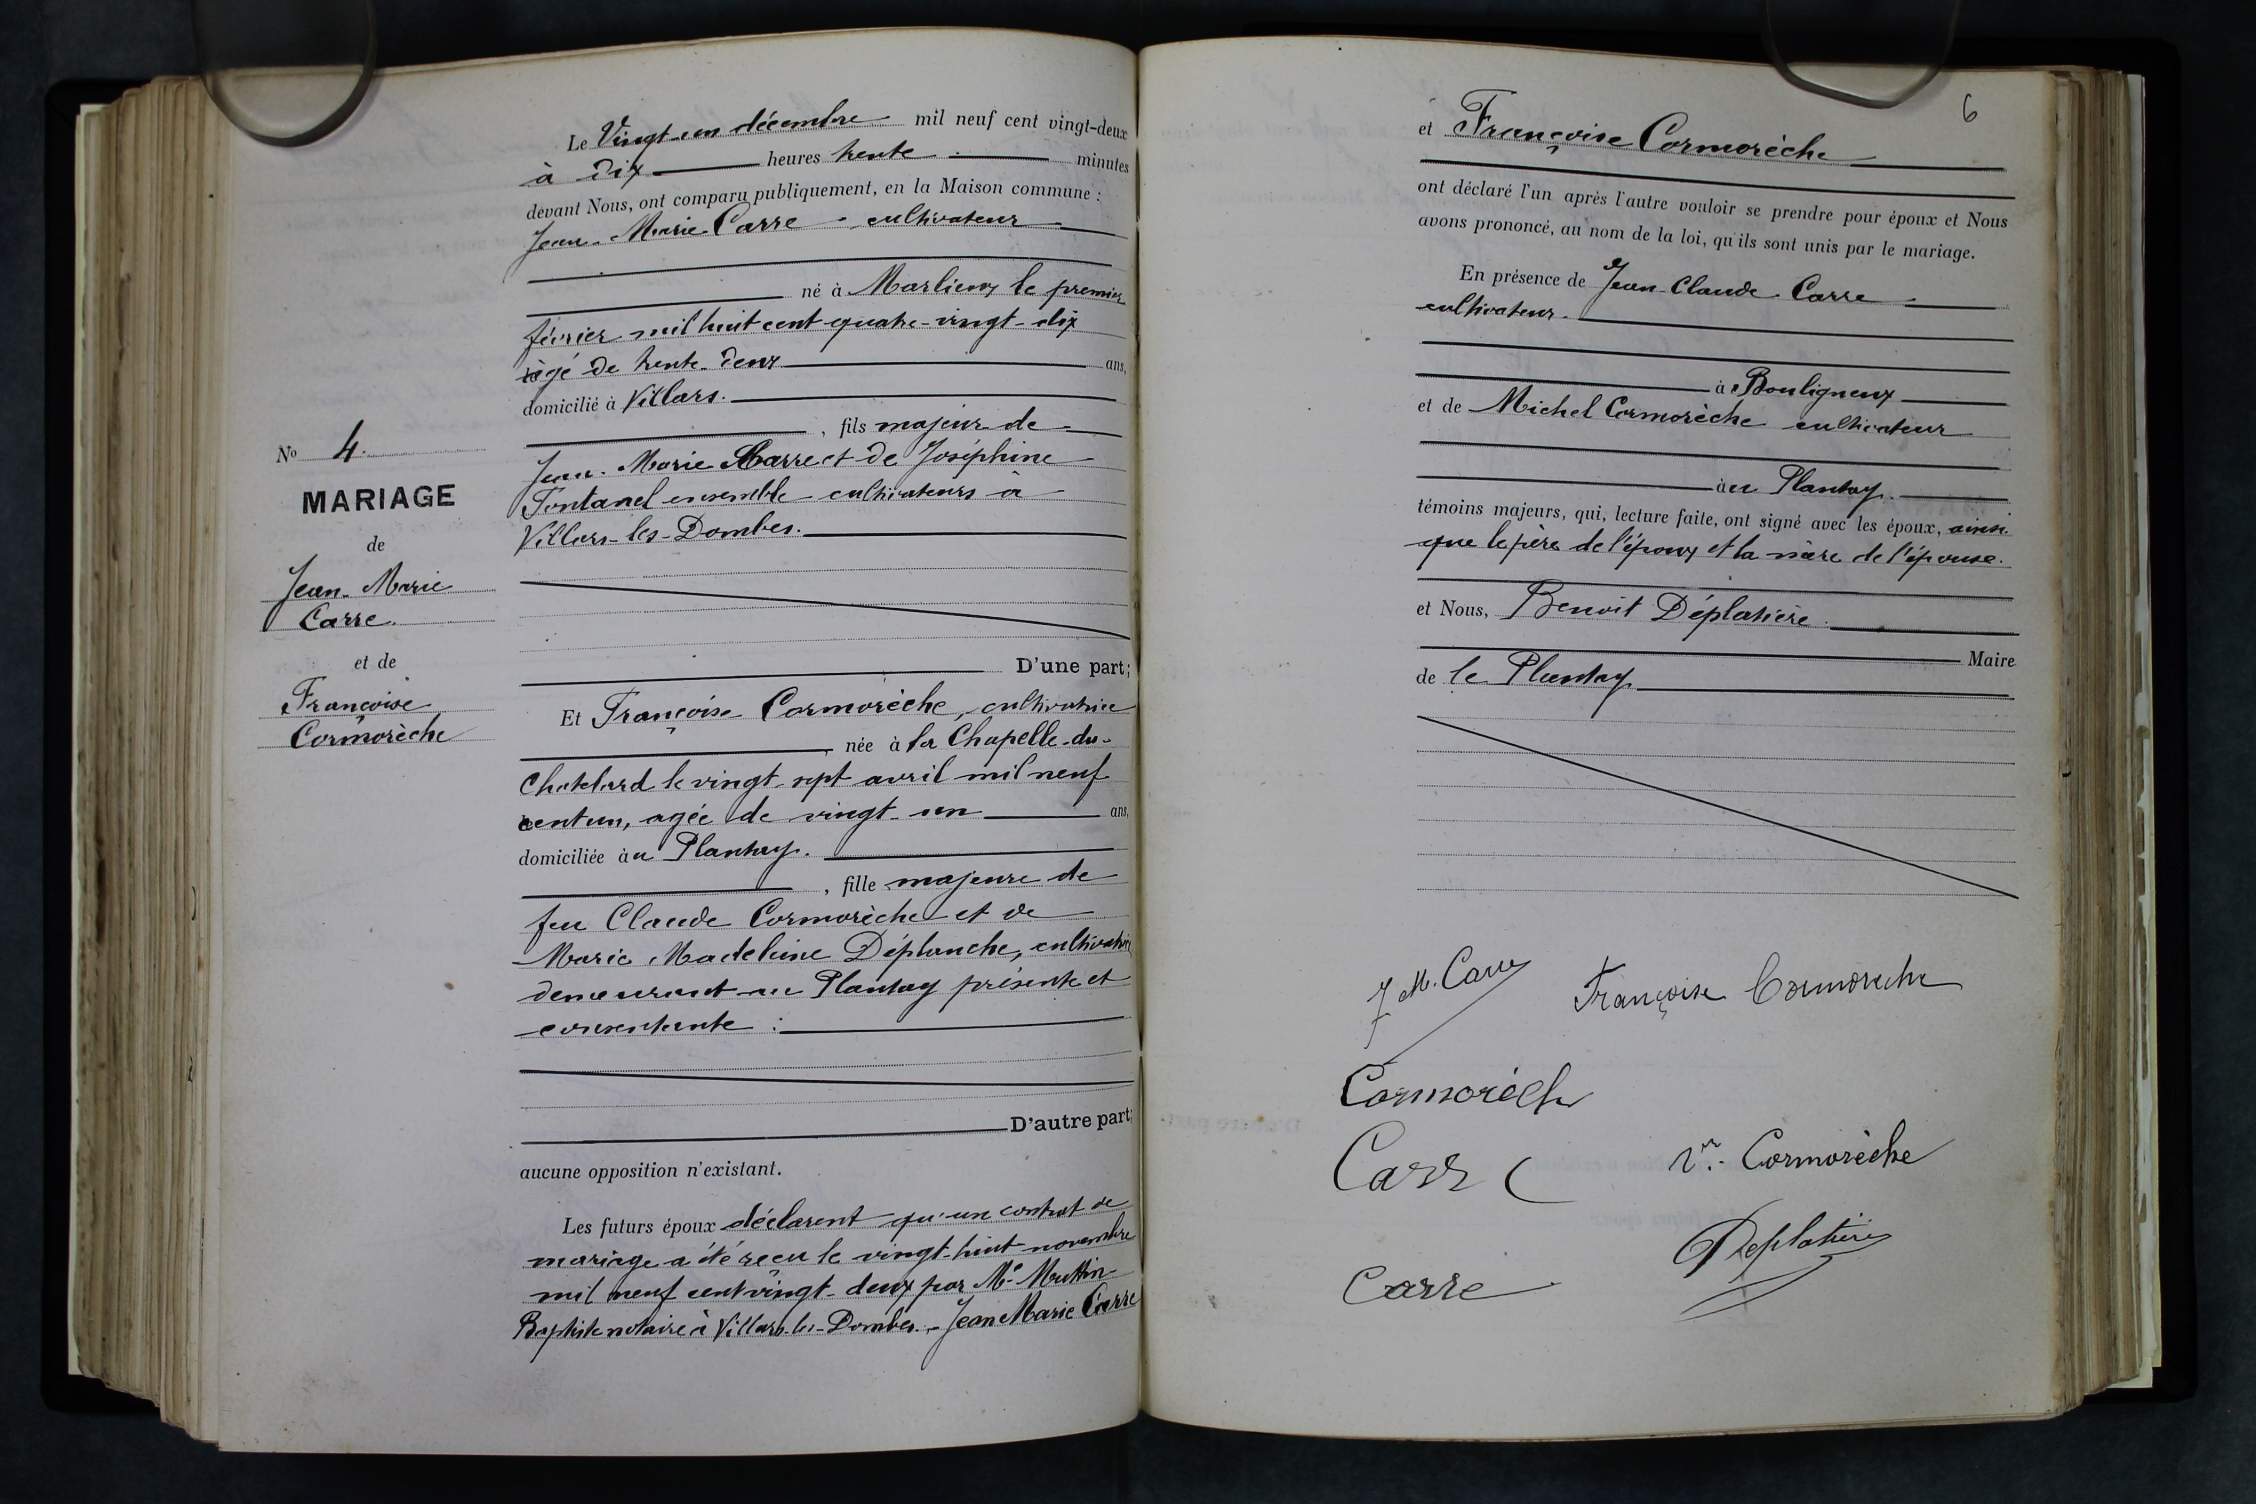 Le Vingt-un décembre mil neuf cent vingt-deux
à dix heures trente minutes
devant Nous, ont comparu publiquement, en la Maison commune :
Jean-Marie Carre cultivateur
né à Marlieux le premier
février mil huit cent quatre-vingt-dix
âgé de trente-deux ans,
domicilié à Villars.
, fils majeur de
Jean-Marie Carre et de Joséphine
Fontanel ensemble cultivateurs à
Villars-les-Dombes.
D'une part;
Nº 4.
MARIAGE
de
Jean-Marie
Carre.
et de
Françoise
Cormorèche
Et Françoise Cormorèche, cultivatrice
née à la Chapelle-du-
Chatelard le vingt-sept avril mil neuf
cent un, agée de vingt-un ans,
domiciliée au Plantay.
, fille majeure de
feu Claude Cormorèche et de
Marie Madeleine Déplanche, cultivatrice
demeurant au Plantay présente et
consentante :
D'autre part;
aucune opposition n'existant.
Les futurs époux déclarent qu'un contrat de
mariage a été recu le vingt-huit novembre
mil neuf cent vingt-deux par Me Muttin
Baptiste notaire à Villars-les-Dombes. Jean Marie Carre
6
et Françoise Cormorèche
ont déclaré l'un après l'autre vouloir se prendre pour époux et Nous
avons prononcé, au nom de la loi, qu'ils sont unis par le mariage.
En présence de Jean-Claude Carre
cultivateur.
à Bouligneux
et de Michel Cormorèche cultivateur
au Plantay.
témoins majeurs, qui, lecture faite, ont signé avec les époux, ainsi
que le père de l'époux et la mère de l'épouse.
et Nous, Benoît Déplatière
Maire
de le Plantay
J M. Carre Françoise Cormorèche
Cormorèche
Carre Vve Cormorèche
Deplatière
Carre